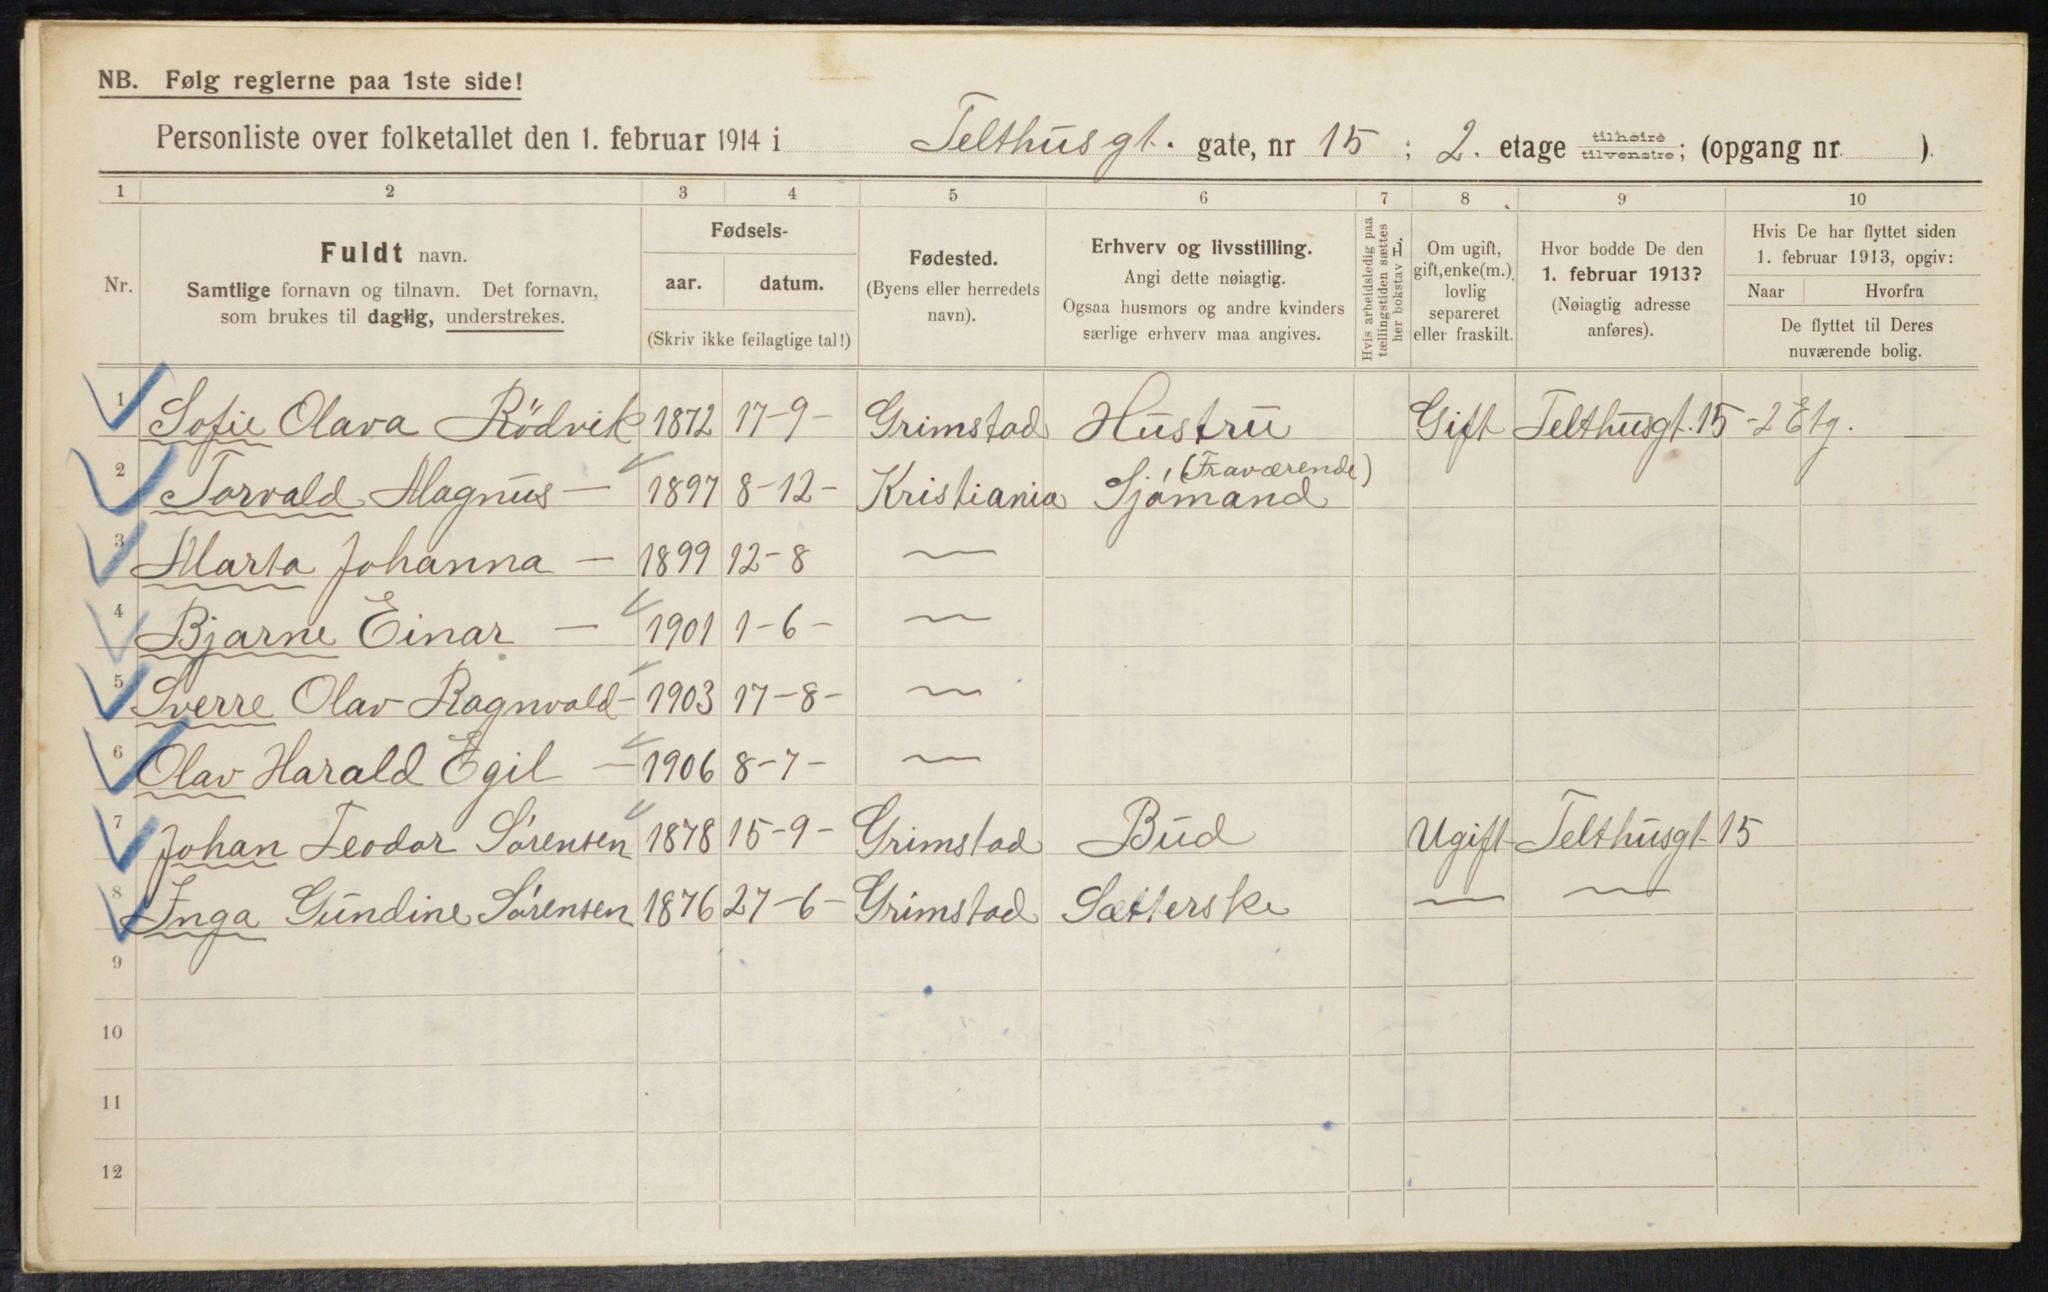 NB. Følg reglerne paa 1ste side!
Personliste over folketallet den 1. februar 1914 i Telthusgt. gate, nr 15 ; 2. etage tilhøire tilvenstre; (opgang nr. ).
1 2 3 4 5 6 7 8 9 10
Nr.
Fuldt navn.
Samtlige fornavn og tilnavn. Det fornavn,
som brukes til daglig, understrekes.
Fødsels-
aar. datum.
(Skriv ikke feilagtige tal!)
Fødested.
(Byens eller herredets
navn).
Erhverv og livsstilling.
Angi dette nøiagtig.
Ogsaa husmors og andre kvinders
særlige erhverv maa angives.
Hvis arbeidsledig paa
tællingstiden sættes
her bokstav L.
Om ugift,
gift, enke(m.),
lovlig
separeret
eller fraskilt.
Hvor bodde De den
1. februar 1913?
(Nøiagtig adresse
anføres).
Hvis De har flyttet siden
1. februar 1913, opgiv:
Naar Hvorfra
De flyttet til Deres
nuværende bolig.
1 Sofie Olava Rödvik 1872 17-9- Grimstad Hustru Gift Telthusgt. 15 - 2 Etg.
2 Torvald Magnus — 1897 8-12- Kristiania Sjómand (Fraværende)
3 Marta Johanna — 1899 12-8 —
4 Bjarne Einar — 1901 1-6- —
5 Sverre Olav Ragnvald - 1903 17-8- —
6 Olav Harald Egil — 1906 8-7- —
7 Johan Teodor Sórensen 1878 15-9- Grimstad Bud Ugift Telthusgt 15
8 Inga Gundine Sórensen 1876 27-6- Grimstad Sætterske — —
9
10
11
12